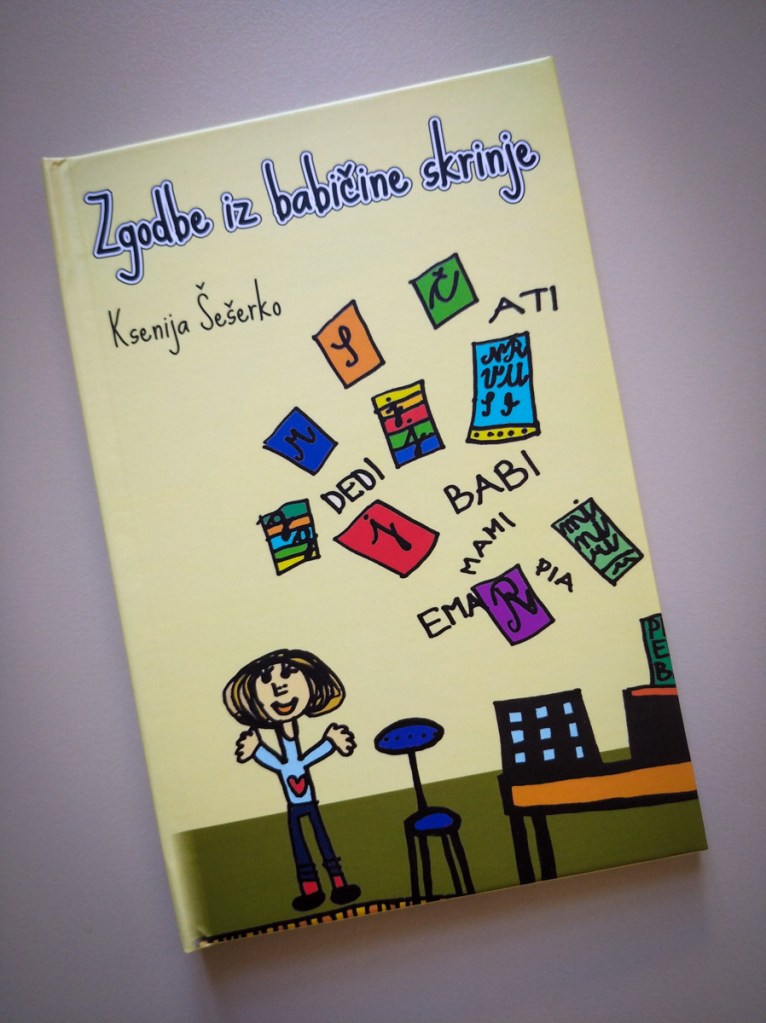 Zgodbe iz babičine skrinje
Ksenija Šešerko
Č
ATI
S
NR
VUU
M
DEDI
BABI
j
MAMI
PIA
EMA
R